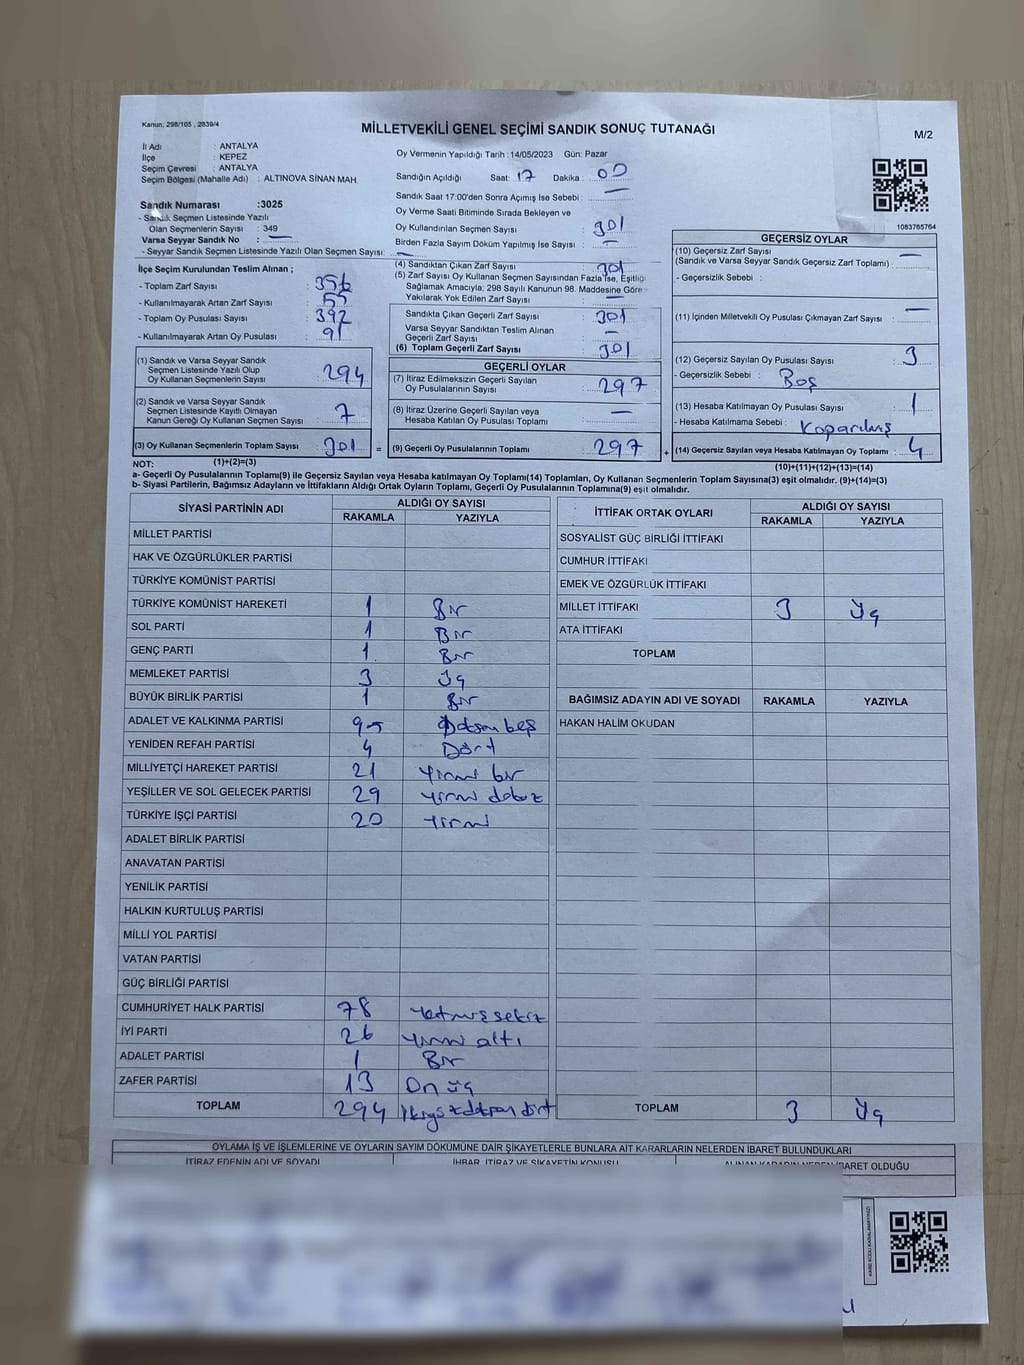 Kanun; 298/105 , 2839/4
MİLLETVEKİLİ GENEL SEÇİMİ SANDIK SONUÇ TUTANAĞI
M/2
İl Adı : ANTALYA
İlçe : KEPEZ
Seçim Çevresi : ANTALYA
Seçim Bölgesi (Mahalle Adı) : ALTINOVA SİNAN MAH.
Sandık Numarası :3025
- Sandık Seçmen Listesinde Yazılı
Olan Seçmenlerin Sayısı : 349
Varsa Seyyar Sandık No : —
- Seyyar Sandık Seçmen Listesinde Yazılı Olan Seçmen Sayısı: —
İlçe Seçim Kurulundan Teslim Alınan ;
- Toplam Zarf Sayısı : 356
- Kullanılmayarak Artan Zarf Sayısı : 55
- Toplam Oy Pusulası Sayısı : 392
- Kullanılmayarak Artan Oy Pusulası : 91
(1) Sandık ve Varsa Seyyar Sandık
Seçmen Listesinde Yazılı Olup
Oy Kullanan Seçmenlerin Sayısı : 294
(2) Sandık ve Varsa Seyyar Sandık
Seçmen Listesinde Kayıtlı Olmayan
Kanun Gereği Oy Kullanan Seçmen Sayısı : 7
(3) Oy Kullanan Seçmenlerin Toplam Sayısı : 301 =
Oy Vermenin Yapıldığı Tarih :14/05/2023 Gün: Pazar
Sandığın Açıldığı Saat: 17 Dakika : 00
Sandık Saat 17:00'den Sonra Açımış İse Sebebi : —
Oy Verme Saati Bitiminde Sırada Bekleyen ve
Oy Kullandırılan Seçmen Sayısı : 301
Birden Fazla Sayım Döküm Yapılmış İse Sayısı : —
(4) Sandıktan Çıkan Zarf Sayısı : 301
(5) Zarf Sayısı Oy Kullanan Seçmen Sayısından Fazla İse, Eşitliği
Sağlamak Amacıyla; 298 Sayılı Kanunun 98. Maddesine Göre
Yakılarak Yok Edilen Zarf Sayısı : —
Sandıkta Çıkan Geçerli Zarf Sayısı : 301
Varsa Seyyar Sandıktan Teslim Alınan
Geçerli Zarf Sayısı : —
(6) Toplam Geçerli Zarf Sayısı : 301
GEÇERLİ OYLAR
(7) İtiraz Edilmeksizin Geçerli Sayılan
Oy Pusulalarının Sayısı : 297
(8) İtiraz Üzerine Geçerli Sayılan veya
Hesaba Katılan Oy Pusulası Toplamı : —
(9) Geçerli Oy Pusulalarının Toplamı : 297 +
1083765764
GEÇERSİZ OYLAR
(10) Geçersiz Zarf Sayısı
(Sandık ve Varsa Seyyar Sandık Geçersiz Zarf Toplamı) : —
- Geçersizlik Sebebi :
(11) İçinden Milletvekili Oy Pusulası Çıkmayan Zarf Sayısı : —
(12) Geçersiz Sayılan Oy Pusulası Sayısı : 3
- Geçersizlik Sebebi : Boş
(13) Hesaba Katılmayan Oy Pusulası Sayısı : 1
- Hesaba Katılmama Sebebi : Koparılmış
(14) Geçersiz Sayılan veya Hesaba Katılmayan Oy Toplamı : 4
NOT: (1)+(2)=(3)
(10)+(11)+(12)+(13)=(14)
a- Geçerli Oy Pusulalarının Toplamı(9) ile Geçersiz Sayılan veya Hesaba katılmayan Oy Toplamı(14) Toplamları, Oy Kullanan Seçmenlerin Toplam Sayısına(3) eşit olmalıdır. (9)+(14)=(3)
b- Siyasi Partilerin, Bağımsız Adayların ve İttifakların Aldığı Ortak Oyların Toplamı, Geçerli Oy Pusulalarının Toplamına(9) eşit olmalıdır.
SİYASİ PARTİNİN ADI ALDIĞI OY SAYISI
RAKAMLA YAZIYLA
MİLLET PARTİSİ
HAK VE ÖZGÜRLÜKLER PARTİSİ
TÜRKİYE KOMÜNİST PARTİSİ
TÜRKİYE KOMÜNİST HAREKETİ 1 Bir
SOL PARTİ 1 Bir
GENÇ PARTİ 1 Bir
MEMLEKET PARTİSİ 3 Üç
BÜYÜK BİRLİK PARTİSİ 1 Bir
ADALET VE KALKINMA PARTİSİ 95 Doksan beş
YENİDEN REFAH PARTİSİ 4 Dört
MİLLİYETÇİ HAREKET PARTİSİ 21 Yirmi bir
YEŞİLLER VE SOL GELECEK PARTİSİ 29 Yirmi dokuz
TÜRKİYE İŞÇİ PARTİSİ 20 Yirmi
ADALET BİRLİK PARTİSİ
ANAVATAN PARTİSİ
YENİLİK PARTİSİ
HALKIN KURTULUŞ PARTİSİ
MİLLİ YOL PARTİSİ
VATAN PARTİSİ
GÜÇ BİRLİĞİ PARTİSİ
CUMHURİYET HALK PARTİSİ 78 Yetmiş sekiz
İYİ PARTİ 26 Yirmi altı
ADALET PARTİSİ 1 Bir
ZAFER PARTİSİ 13 On üç
TOPLAM 294 İkiyüz doksan dört
İTTİFAK ORTAK OYLARI ALDIĞI OY SAYISI
RAKAMLA YAZIYLA
SOSYALİST GÜÇ BİRLİĞİ İTTİFAKI
CUMHUR İTTİFAKI
EMEK VE ÖZGÜRLÜK İTTİFAKI
MİLLET İTTİFAKI 3 Üç
ATA İTTİFAKI
TOPLAM
BAĞIMSIZ ADAYIN ADI VE SOYADI RAKAMLA YAZIYLA
HAKAN HALİM OKUDAN
TOPLAM 3 Üç
OYLAMA İŞ VE İŞLEMLERİNE VE OYLARIN SAYIM DÖKÜMÜNE DAİR ŞİKAYETLERLE BUNLARA AİT KARARLARIN NELERDEN İBARET BULUNDUKLARI
İTİRAZ EDENİN ADI VE SOYADI İHBAR, İTİRAZ VE ŞİKAYETİN KONUSU ALINAN KARARIN NEDEN İBARET OLDUĞU